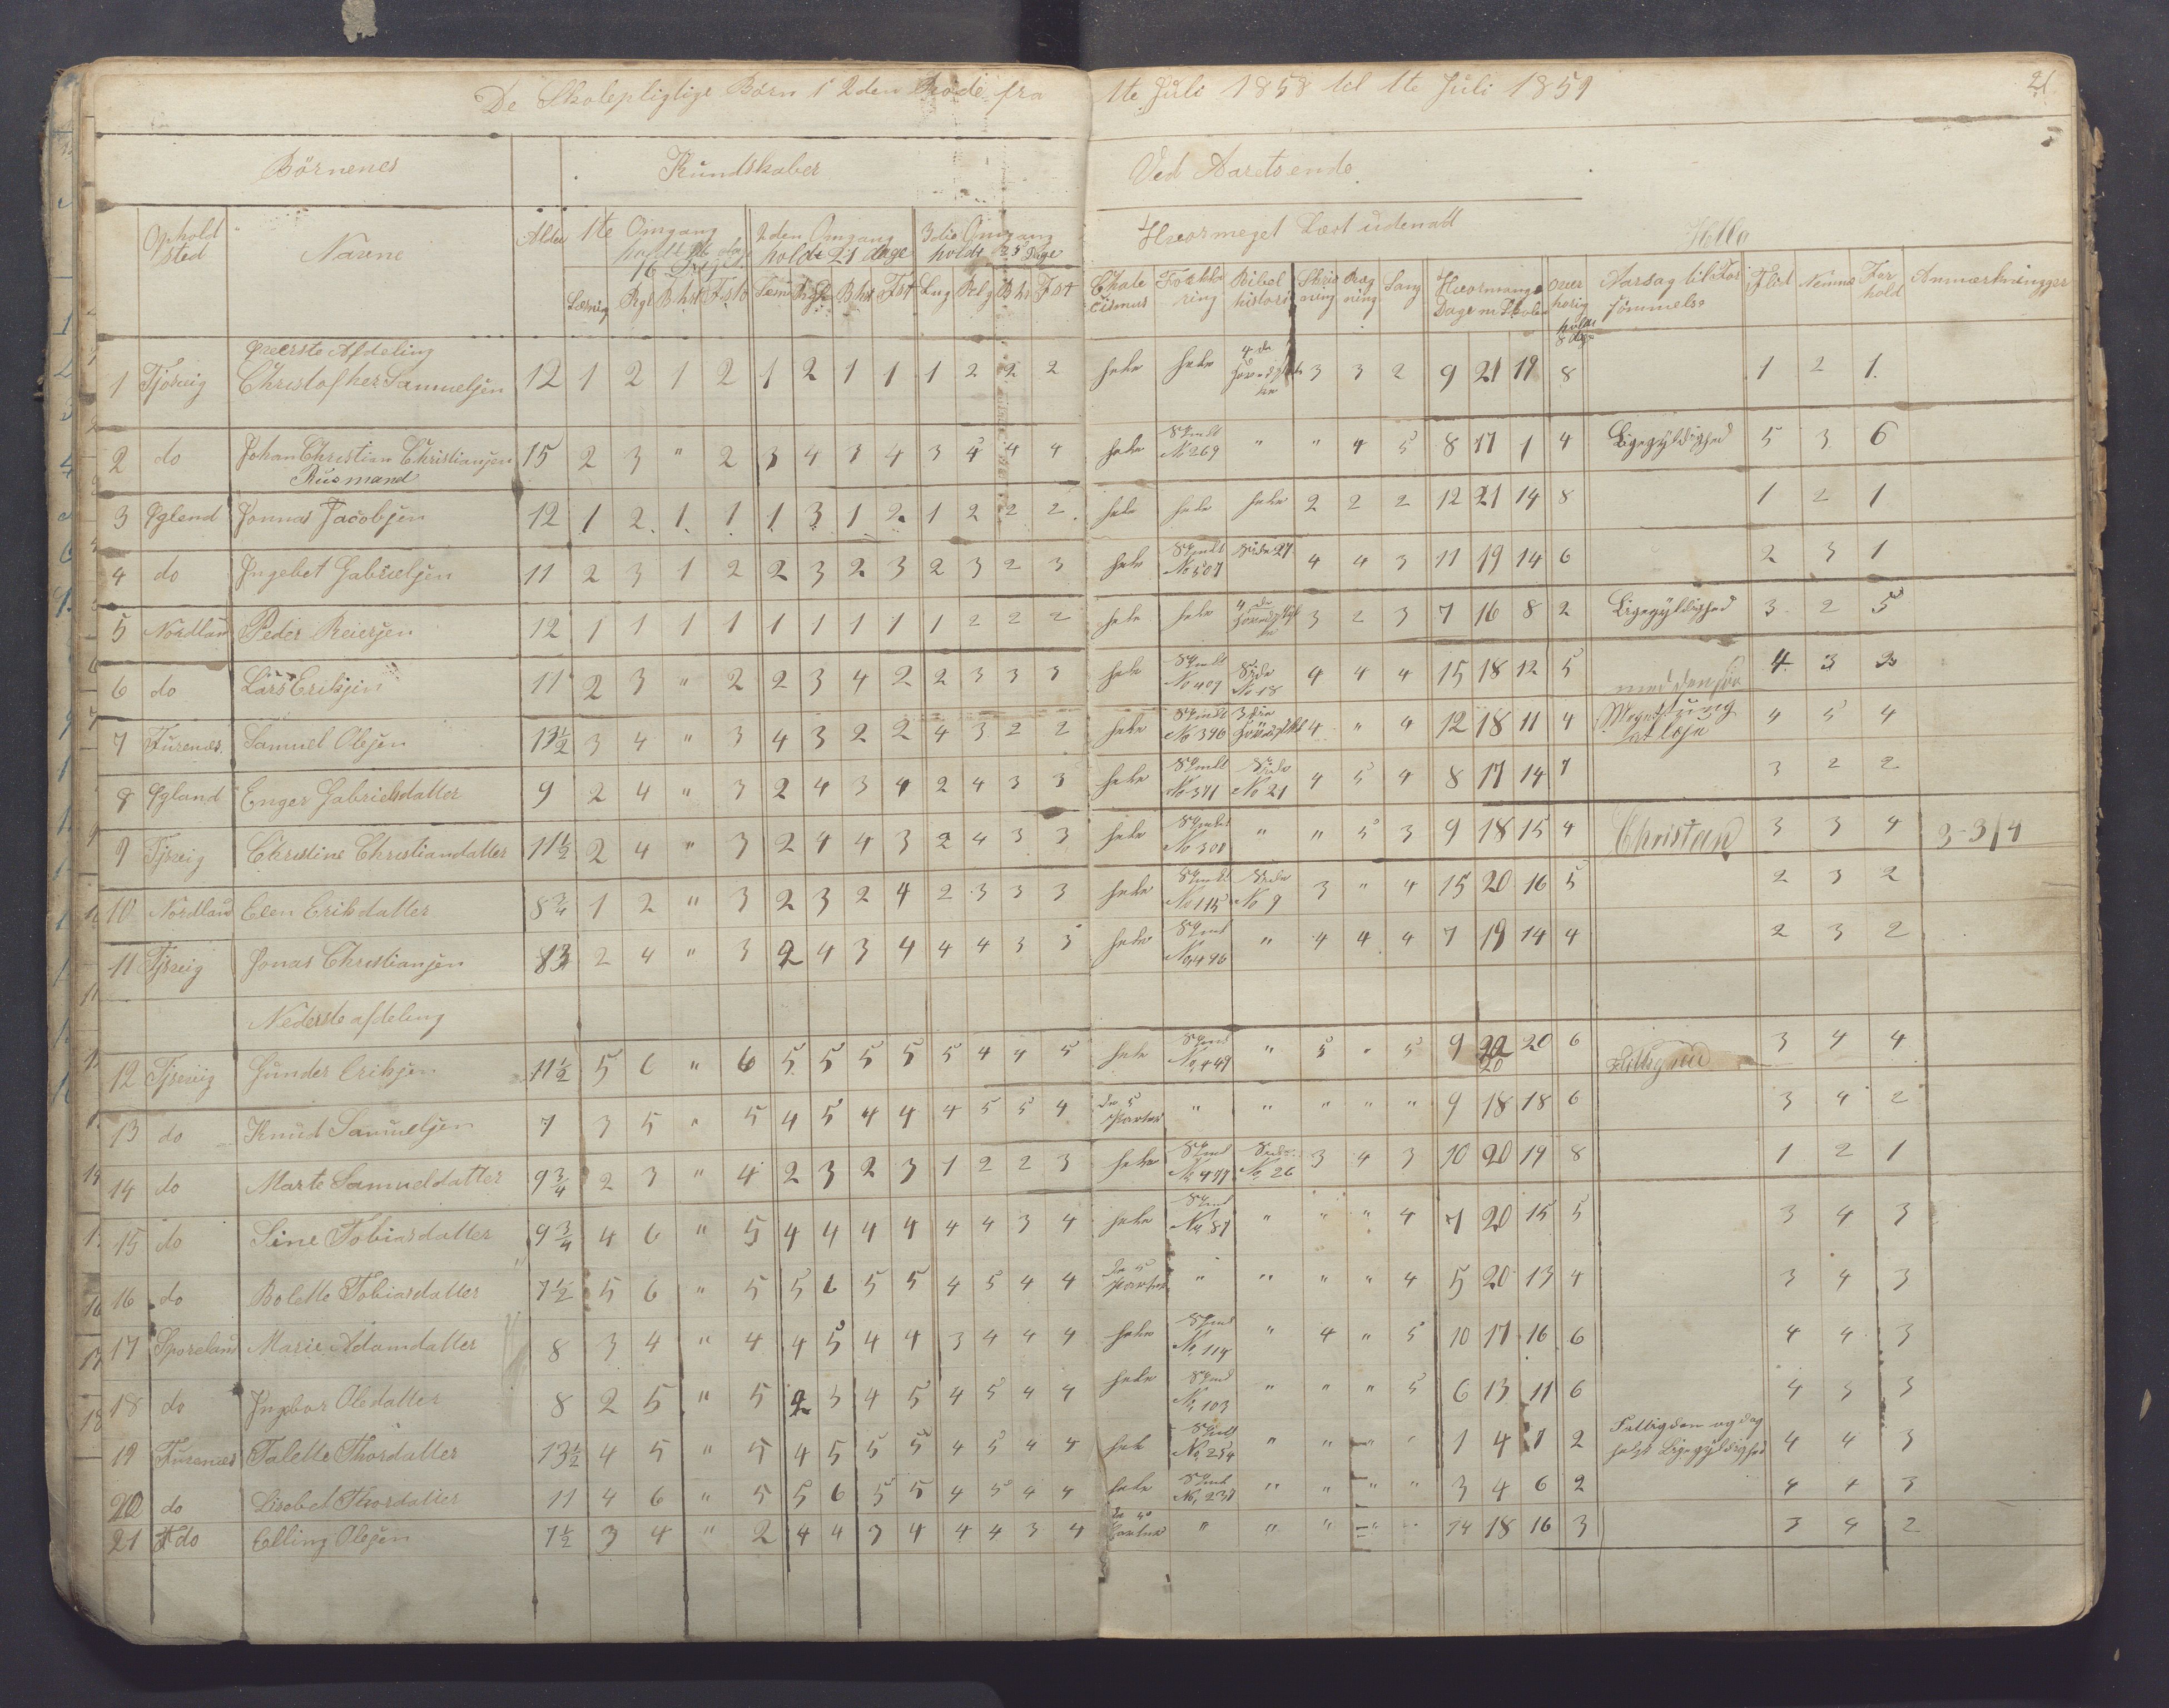 De Skolepligtige Børn i 2den Rode fra 1te Juli 1858 til 1te Juli 1859
21
Börnenes Kundskaber Ved Aaretsende
Hvormeget Læst udenatt
Ophold sted Navne Alder 1te Omgang 2den Omgang holdt 21 dage 3die Omgang holdt Dage
16 Dage
Læsnig Rgl Bhst Fst Bhst Fst Lng Relg Bhs Fst
Chatecismus Forklaring Bibel historie Skrivning Rægning Sang Hvormange Dage m Skolen Aarsag til Forsømmelse Flid Nemme Forhold Anmærkningger
Øverste Afdeling
1 Tjörvig Christofher Samueljen 12 1 2 1 2 1 2 1 1 1 2 2 2 hele hele 4de 3 3 2 9 21 19 8 1 2 1
2 do Johan Christian Christianjen 15 2 3 " 2 3 4 3 4 3 4 4 4 hele No 269 " " 4 5 8 17 1 4 Ligegyldighed 5 3 6
Rusmand
3 Øgland Jonnas Jacobjen 12 1 2 1 1 1 3 1 2 1 2 2 2 hele hele hele 2 2 2 12 21 14 8 1 2 1
4 do Ingebet Gabrieljen 11 2 3 1 2 2 3 2 3 2 3 2 3 hele No 507 Side 27 4 4 3 11 19 14 6 2 3 1
5 Nordland Peder Reierjen 12 1 1 1 1 1 1 1 1 1 2 2 2 hele hele 4de 3 2 3 7 16 8 2 Ligegyldighed 3 2 5
6 do Lars Erikjen 11 2 3 " 2 2 3 4 2 2 3 3 3 hele No 409 Side No 18 4 4 4 15 18 12 5 4 3 3
7 Furenæs Samuel Olejen 13½ 3 4 " 3 4 3 2 2 4 3 2 2 hele No 396 3die 4 " 4 12 18 11 4 Meget tung 4 5 4
8 Øgland Enger Gabrielsdatter 9 2 4 " 3 2 4 3 4 2 4 3 3 hele No 371 Side No 21 4 5 4 8 17 14 7 3 2 2
9 Tjsvig Christine Christiandatter 11½ 2 4 " 3 2 4 4 3 2 4 3 3 hele No 308 " " 5 3 9 18 15 4 Christan 3 3 4 3-3/4
10 Nordland Elen Erikdatter 8¾ 1 2 " 3 2 3 2 4 2 3 3 3 hele No 115 Side No 9 3 " 4 15 20 16 5 2 3 2
11 Tjsvig Jonas Christianjen 13 2 4 " 3 2 4 3 4 4 4 3 3 hele No 496 " 4 4 4 7 19 14 4 2 3 2
Nederste afdeling
12 Tjsvig Gunder Erikjen 11½ 5 6 " 6 5 5 5 5 5 4 4 5 hele No 449 " 5 " 5 9 20 20 6 3 4 4
13 do Knud Samueljen 7 3 5 " 5 4 5 4 4 4 5 5 4 de 5 Parter " " " " " 9 18 18 6 3 4 2
14 do Marte Samueldatter 9¾ 2 3 " 4 2 3 2 3 1 2 2 3 hele No 477 Side No 26 3 4 3 10 20 19 8 1 2 1
15 do Sine Tobiasdatter 9¾ 4 6 " 5 4 4 4 4 4 4 3 4 hele No 87 " " " 4 7 20 15 5 3 4 3
16 do Bolette Tobiasdatter 7½ 5 6 " 5 5 6 5 5 4 5 4 4 de 5 Parter " " " " 4 5 20 13 4 3 4 3
17 Sporeland Marie Adamdatter 8 3 4 " 4 4 5 4 4 3 4 4 4 hele No 114 " 4 " 5 10 17 16 6 4 4 3
18 do Ingbor Oledatter 8 2 5 " 5 2 5 4 5 4 5 4 4 hele No 103 " " " 5 6 13 11 6 4 3 3
19 Furenæs Talette Thordatter 13½ 4 5 " 5 4 5 5 5 4 5 4 4 hele No 254 " " " " 1 4 1 2 Fattigdom og dog Ligegyldighed 4 4 3
20 do Lisebet Thordatter 11 4 6 " 5 5 6 5 5 4 5 4 4 hele No 237 " " " " 3 4 6 2 4 4 3
21 do Elling Olejen 7½ 3 4 " 2 4 4 3 4 4 4 3 4 Parter " " " " " 14 18 16 3 3 4 2